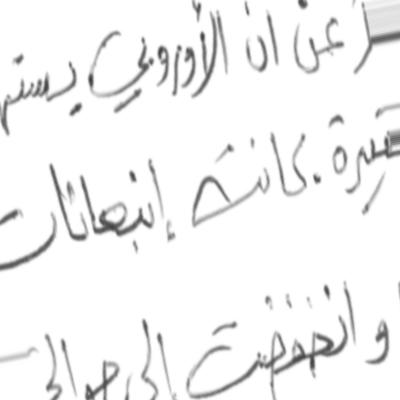 عن أن الأوروبي يسته
كبيرة . كانت إنبعاثات
وانخفضت إلى حوالي